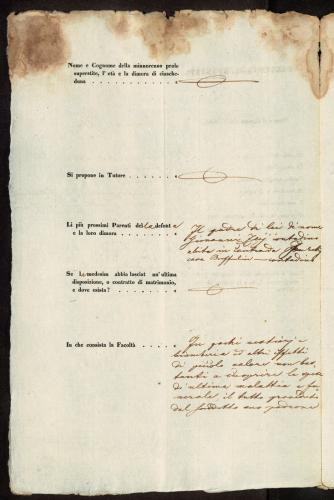 Nome e Cognome della minorenne prole
superstite, l'età e la dimora di ciasche-
duna . . . . . . . . . . . .
Si propone in Tutore . . . . . . . e
Li più prossimi Parenti del la defont a
e la loro dimora . . . . . . . .
Il padre di lei di nome
Giovanni contadino
abita in contrada
casa contadini
Se la medesim a abbia lasciat un'ultima
disposizione, o contratto di matrimonio,
e dove esista? . . . . . . . . .
In che consista la Facoltà . . . . . .
In pochi vestiarj e
biancheria ed altri effetti
di picciolo valore non bas-
tanti a cuoprire le spese
di ultima malattia e fu-
nerale il tutto
dal suddetto suo padrone